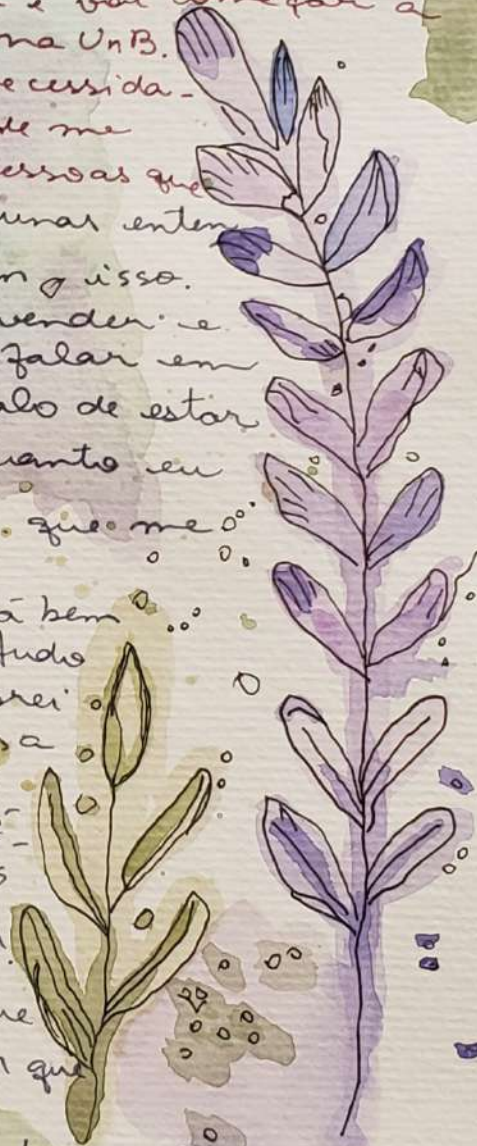 e vai começar a
na UnB.
ecessida-
de me
essoas que
unas enten
m isso.
vender e
falar em
alo de estar
uanto eu
que me
á bem
tudo
rei
sa
ue
que